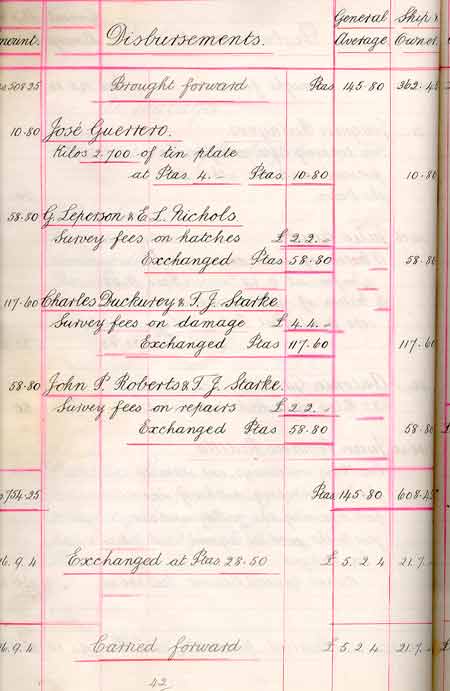 General Ship &
mount. Disbursements. Average Owner
508 25 Brought forward Ptas 145·80 362.4
10.80 José Guerrero.
Kilos 2.700 of tin plate
at Ptas. 4.– Ptas 10.80 10.80
58.80 G. Leperson & E. L. Nichols
Survey fees on hatches £ 2.2.–
Exchanged Ptas 58.80 58.80
117.60 Charles Duckurey & T. J. Starke
Survey fees on damage £ 4.4.–
Exchanged Ptas 117.60 117.60
58.80 John P Roberts & T. J. Starke.
Survey fees on repairs £ 2.2.–
Exchanged Ptas 58.80 58.80
754.25 Ptas 145.80 608.45
6. 9. 4 Exchanged at Ptas 28.50 £ 5. 2 4 21.7.–
6. 9. 4 Carried forward £ 5. 2 4 21.7.–
42